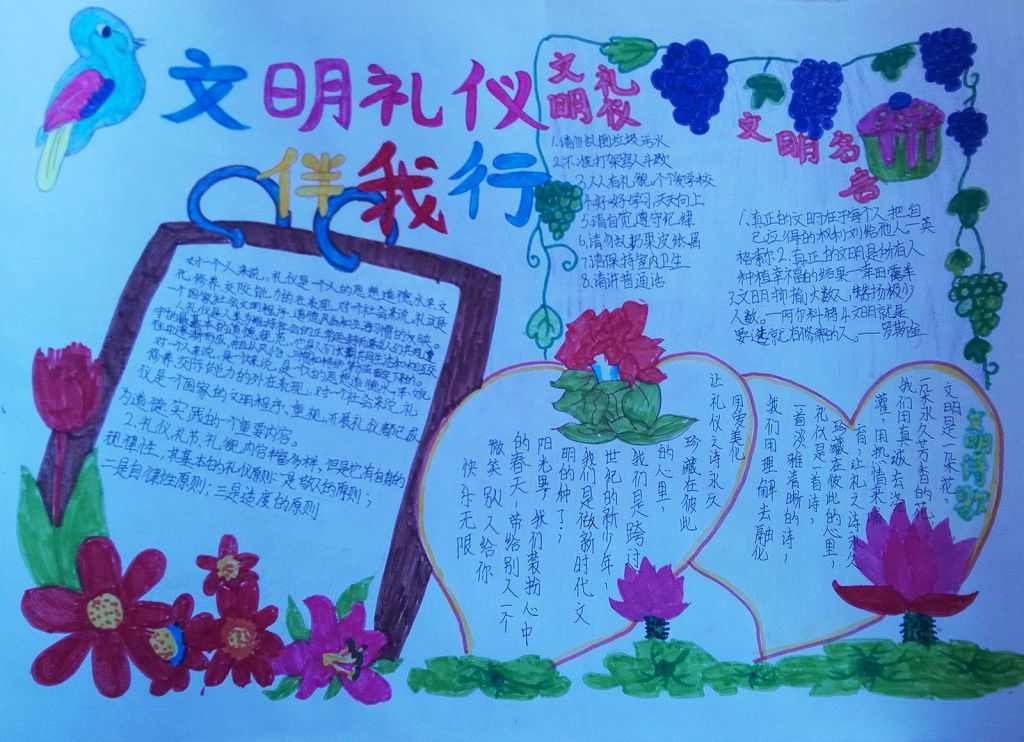 文明礼仪
伴我行
文明礼仪
1.请勿乱倒垃圾污水
2.不准打架骂人斗殴
3.人人有礼貌个个爱学校
4.好好学习天天向上
5.请自觉遵守纪律
6.请勿乱扔果皮纸屑
7.请保持室内卫生
8.请讲普通话
文明名言
1.真正的文明在于每个人把自
己应得的权利对给他人。—英
格索尔2.真正的文明是所有人
种植幸福的结果—幸田露半
3.文明排挤大数人,
人数。—阿尔科特4.文明就是
要造就有修养的人。——罗斯金
对一个人来说,礼仪是一个人的思想道德水平文
化修养交际能力的外在表现,对一个社会来说,礼仪是
一个国家社会文明程序、道德风尚和生活习惯的反映。
1.礼仪是人类为维持社会的正常
守的最基本的道德规范,它是人们在长期共同生活和相互交
对一个人来说,是一个人的思想道德水平文化
修养交际能力的外在表现,对一个社会来说,礼
仪是一个国家的文明程序,重视、开展礼仪都已成
为道德实践的一个重要内容。
2、礼仪、礼节、礼貌内容丰富多样,但是它有自身的
规律性,其基本的礼仪原则:一是敬人的原则;
二是自律性原则;三是适度的原则
文明诗歌
文明是一朵花,
一朵永久芳香的花,
我们用真诚去浇
灌,用热情来哺
育,让礼之诗永久
珍藏在彼此的心里,
礼仪是一首诗,
一首淡雅清晰的诗,
我们用理解去融化
用爱美化
让礼仪之诗永久
珍藏在彼此
的心里,
我们是跨过
世纪的新少年,
我们是做新时代文
明的种了,
阳光里,我们装扮心中
的春天,带给别人一个
微笑别人给你
快乐无限